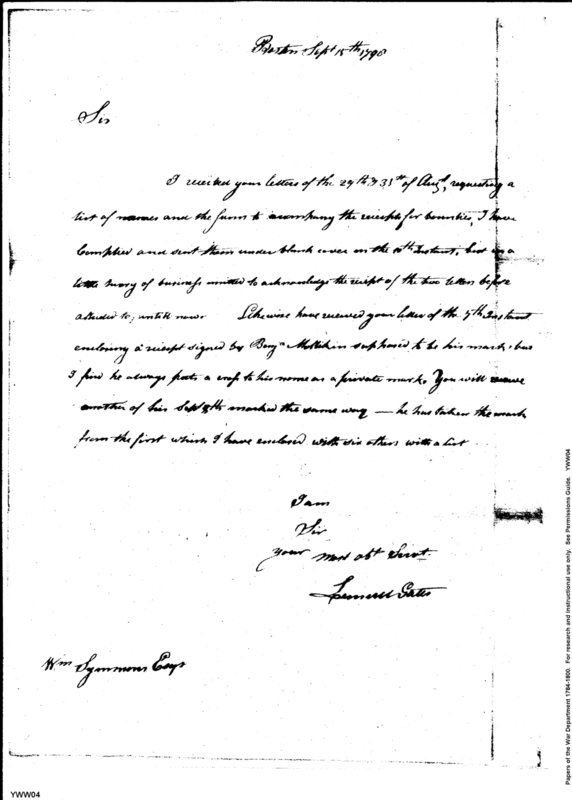 Boston Sept 15th 1798
Sir
I received your letters of the 29th & 31st of Augt, requesting a
list of names and the form to accompany the receipts for bounties, I have
Complied and sent them under blank cover on the 10th Instant, but in a
little hurry of business omitted to acknowledge the receipt of the two letters before
alluded to, untill now. Likewise have received your letter of the 7th Instant
enclosing a receipt signed by Benjn supposed to be his mark, but
I find he always puts a cross to his name as a private mark. You will
another of his Sept 8th marked the same way — he has taken the mark
from the first which I have enclosed with six others with a list
I am
Sir
your most obt Servt.
Lemuell Gates
Wm Symmons Esqr
YWW04
Papers of the War Department 1784-1800. For research and instructional use only. See Permissions Guide. YWW04